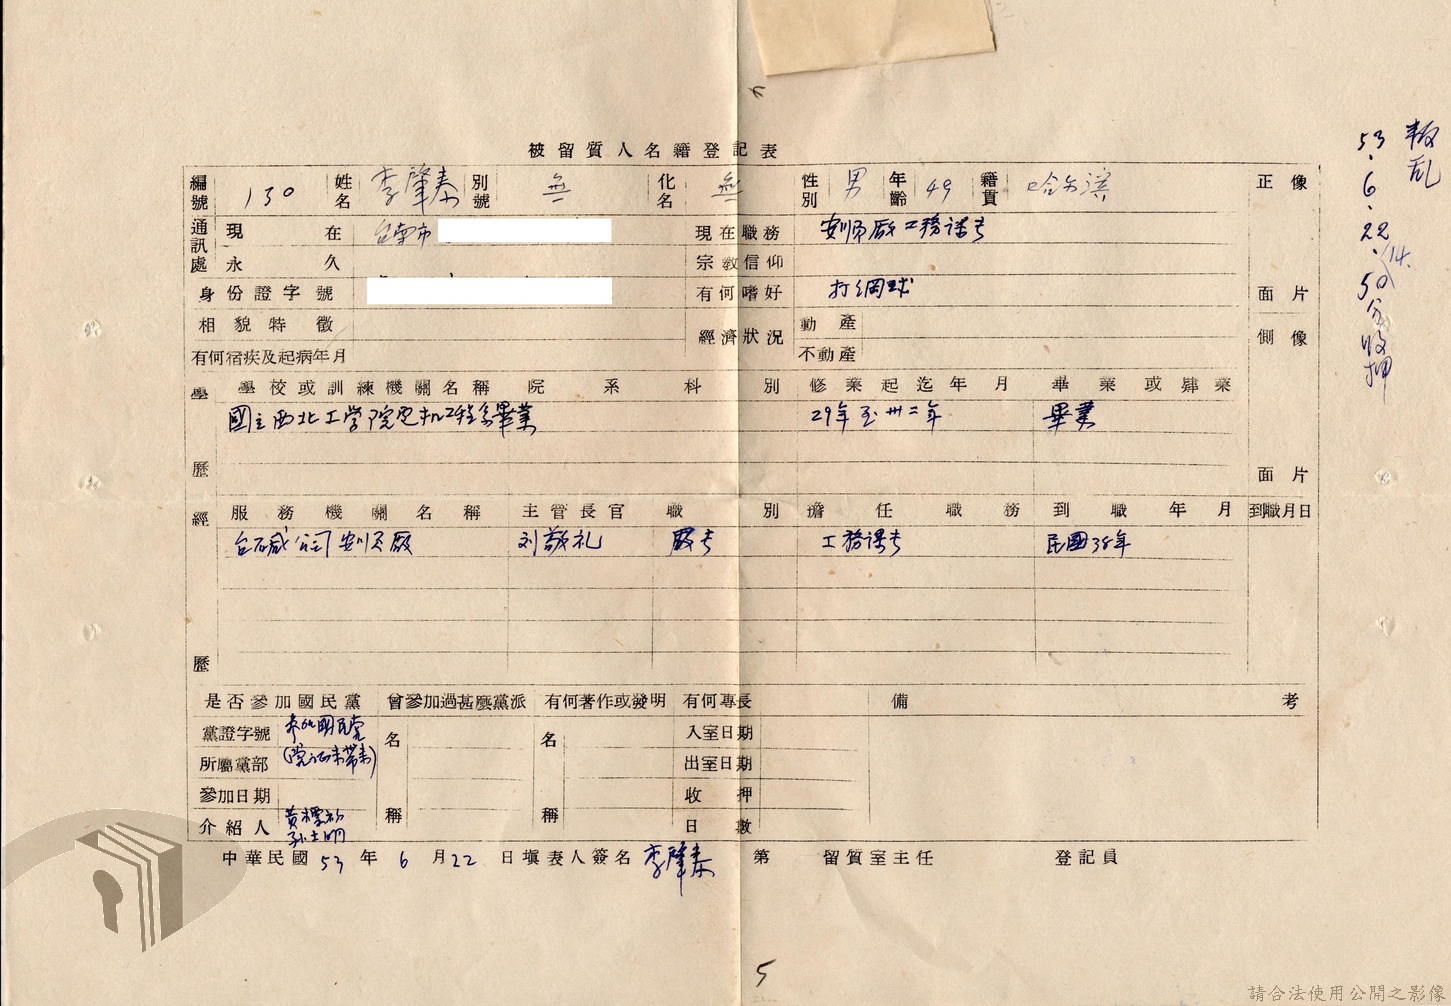 被留質人名籍登記表
編號 130 姓名 李肇泰 別號 無 化名 無 性別 男 年齡 49 籍貫 哈尔濱 正 像
通訊處 現 在 台南市 現在職務 安順廠工務課長
永 久 宗教信仰
身份證字號 有何嗜好 打網球 面 片
相貌特徵 經濟狀況 動 產 側 像
有何宿疾及起病年月 不動產
學 學校或訓練機關名稱 院系科別 修業起迄年月 畢業或肄業
國立西北工学院电机工程系畢業 29年至卅二年 畢業
歷 面 片
經 服務機關名稱 主管長官 職別 擔任職務 到職年月 到職月日
台碱公司安順廠 刘敬礼 廠长 工務課长 民國38年
歷
是否參加國民黨 曾參加過甚麼黨派 有何著作或發明 有何專長 備 考
黨證字號 參加國民党 名 名 入室日期
所屬黨部 (党证未带来) 出室日期
參加日期 稱 稱 收 押
介紹人 孙士明 日 數
中華民國 53 年 6 月 22 日填表人簽名 李肇泰 第 留質室主任 登記員
叛乱
53.6.22.14.50分收押
5
請合法使用公開之影像